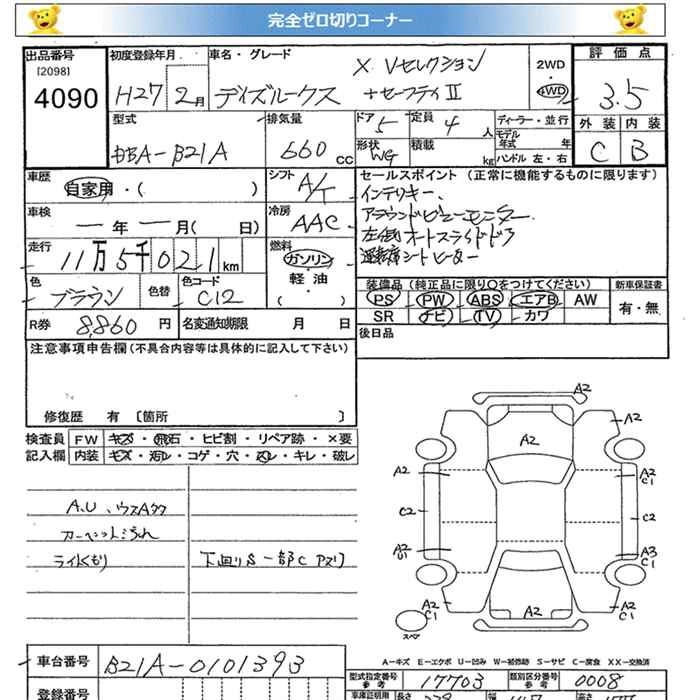 完全ゼロ切りコーナー
出品番号 初度登録年月 車名・グレード 2WD・4WD 評価点
[2098]
4090 H27年 2月 デイズルークス X Vセレクション +セーフティⅡ 3.5
型式 排気量 ドア 定員 ディーラー・並行 外装 内装
DBA-B21A 660cc 5 4人 モデル年式 年 C B
形状 積載 ハンドル 左・右
WG kg
車歴 自家用・( ) シフト A/T セールスポイント (正常に機能するものに限ります)
インテリキー、
車検 ー年ー月( 日) 冷房 AAC アラウンドビューモニター、
左側オートスライドドア
走行 11万5千021km 燃料 ガソリン・軽油( ) 運転席シートヒーター
装備品 (純正品に限り〇をつけてください) 新車保証書
色 ブラウン 色替 色コード C12 PS PW ABS エアB AW 有・無
SR ナビ TV カワ
R券 8,860円 名変通知期限 月 日 後日品
注意事項申告欄(不具合内容等は具体的に記入して下さい)
修復歴 有 [箇所 ]
検査員 FW キズ・飛石・ヒビ割・リペア跡・×要
記入欄 内装 キズ・汚レ・コゲ・穴・スレ・キレ・破レ
A2
A2
A2
A2 A2
C1
C2 C2
A.U、ウスAタタ
カーペットよごれ
ライトくもり 下廻りS 一部C アリ
A2 A3
U1 C1
A2 A2 A2
C1 C1
スペア
A-キズ E-エクボ U-凹み W-補修跡 S-サビ C-腐食 XX-交換済
車台番号 B21A-0101393
型式指定番号 17703 類別区分番号 0008
参考 参考
登録番号 車庫証明用 長さ 幅 高さ